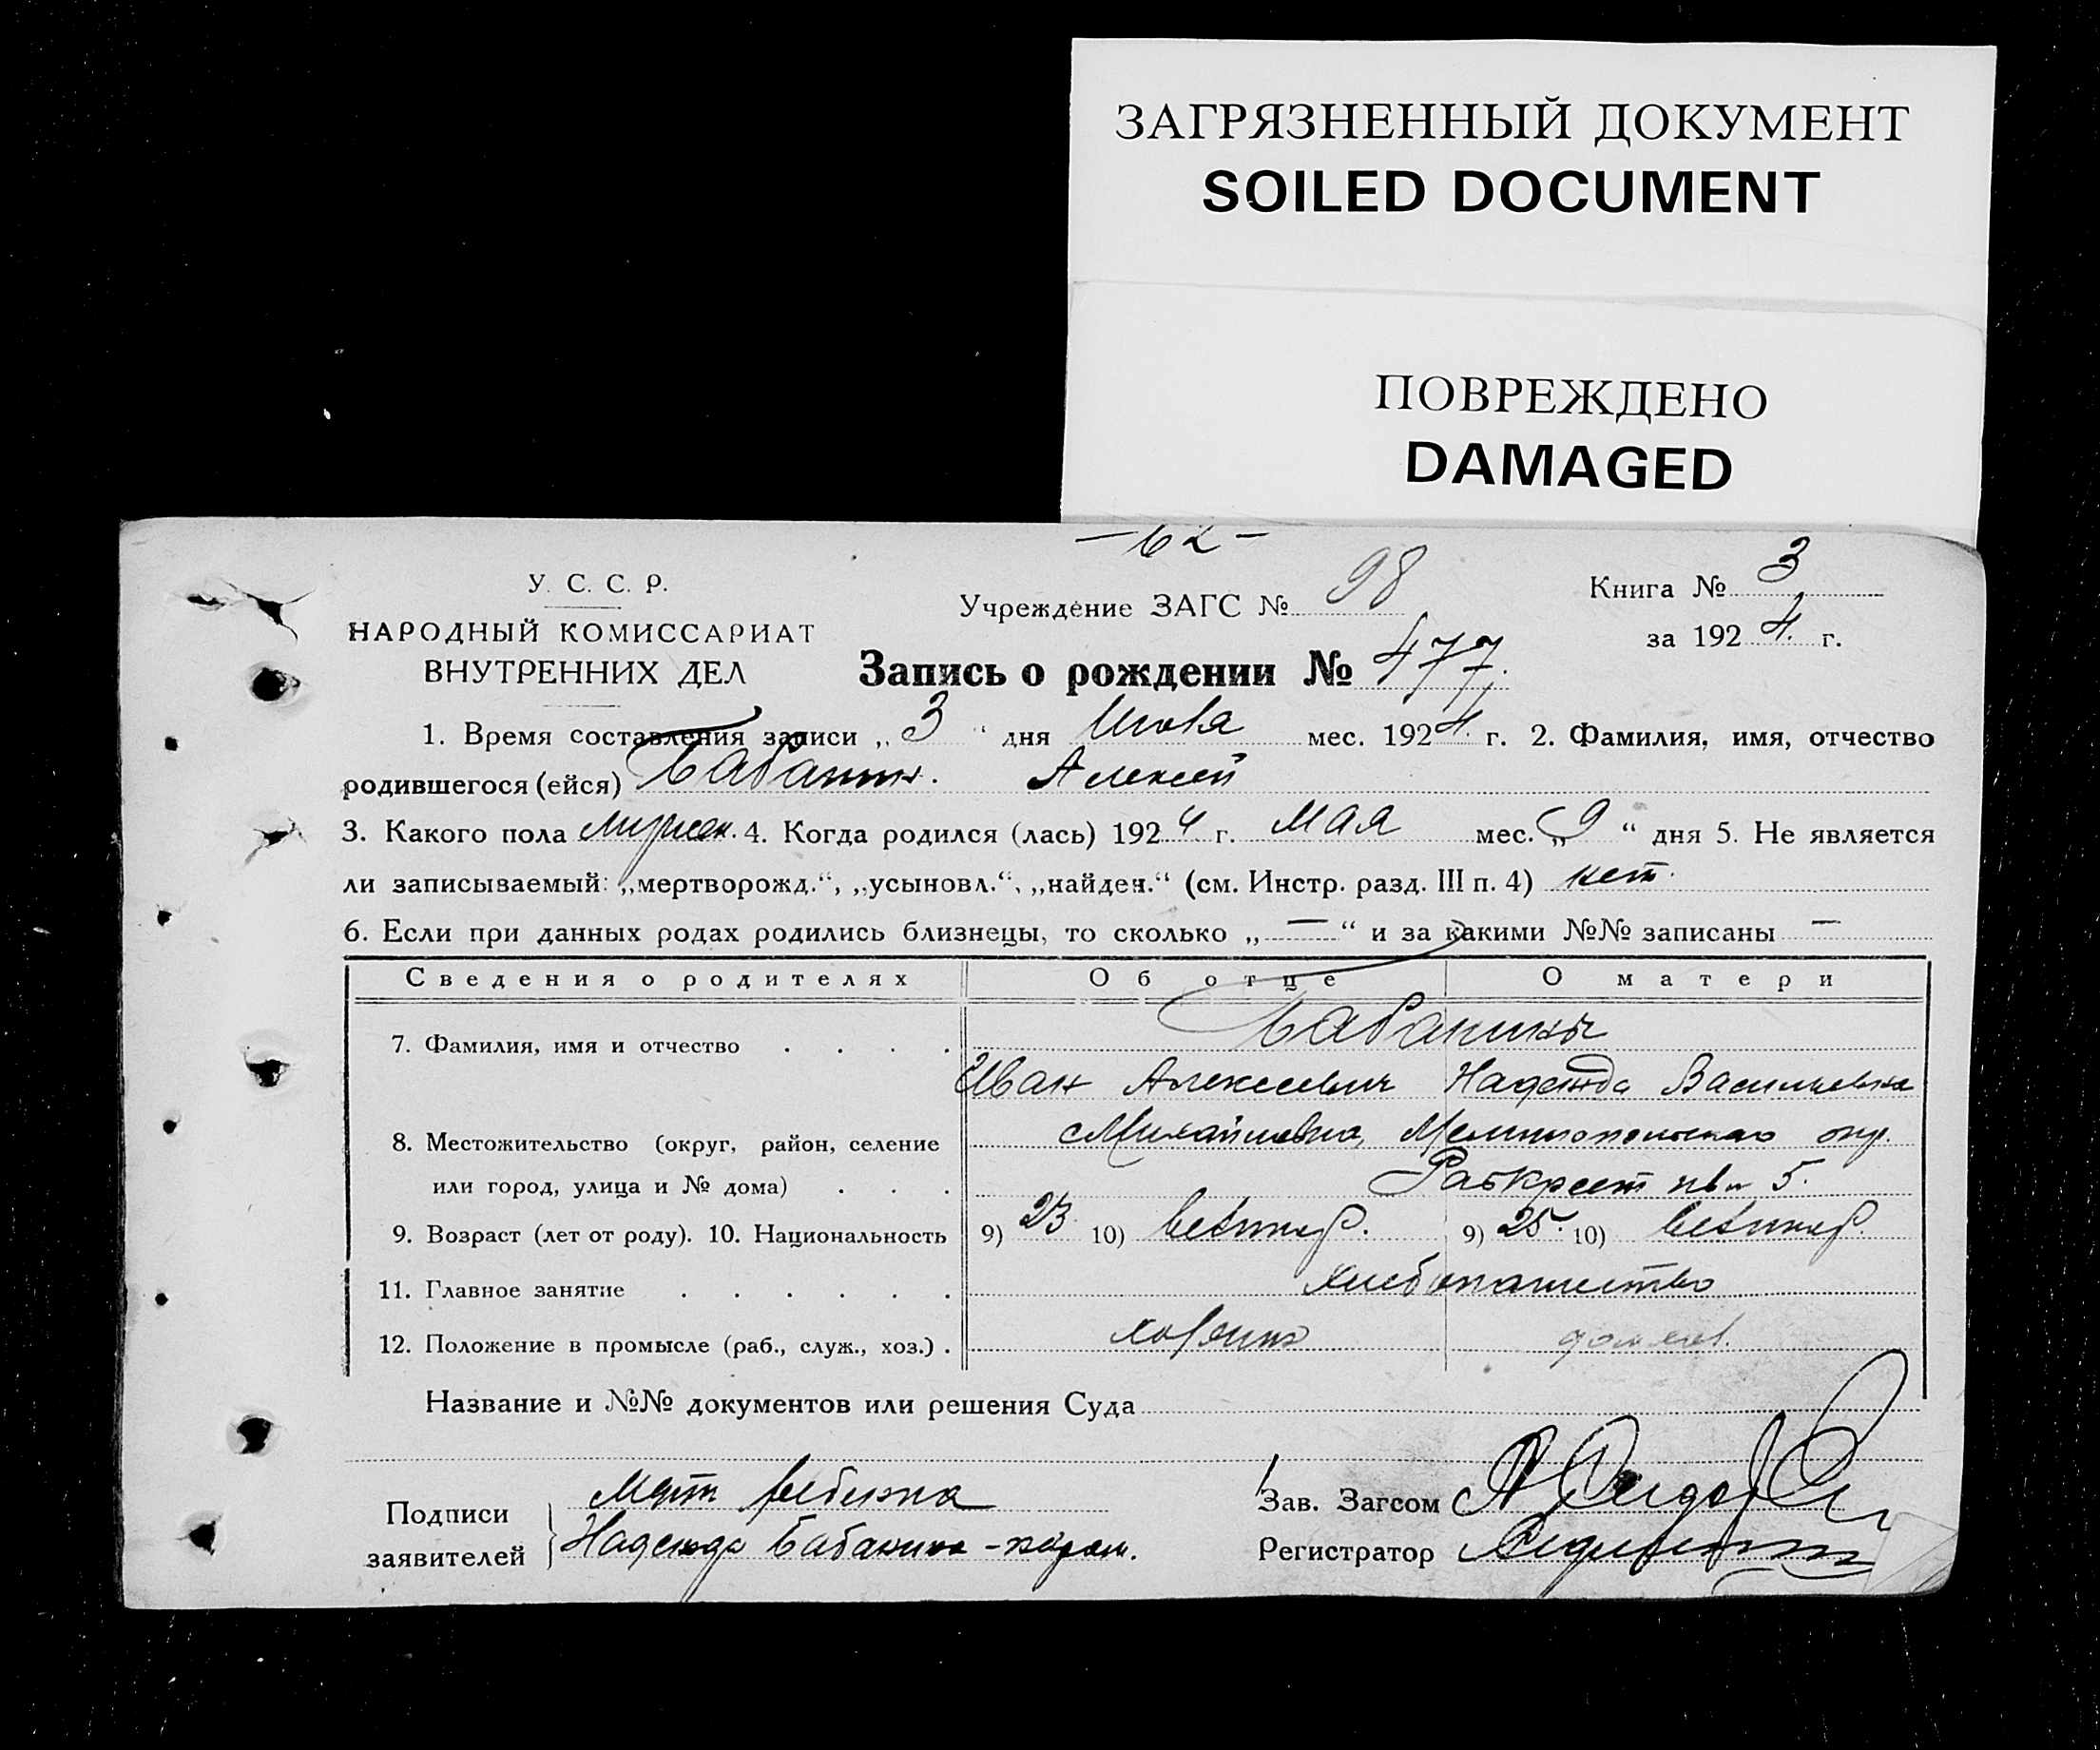 ЗАГРЯЗНЕННЫЙ ДОКУМЕНТ
SOILED DOCUMENT
ПОВРЕЖДЕНО
DAMAGED
— 62 —
У. С. С. Р.
НАРОДНЫЙ КОМИССАРИАТ
ВНУТРЕННИХ ДЕЛ
Учреждение ЗАГС № 98
Книга № 3
за 1924 г.
Запись о рождении № 477.
1. Время составления записи „3“ дня Июля мес. 1924 г. 2. Фамилия, имя, отчество
родившегося (ейся) Бабанин. Алексей
3. Какого пола мужск. 4. Когда родился (лась) 1924 г. Мая мес. „9“ дня 5. Не является
ли записываемый: „мертворожд.“, „усыновл.“, „найден.“ (см. Инстр. разд. III п. 4) нет.
6. Если при данных родах родились близнецы, то сколько „—“ и за какими №№ записаны —
Сведения о родителях Об отце О матери
7. Фамилия, имя и отчество . . . . Бабанины
Иван Алексеевич Надежда Васильевна
8. Местожительство (округ, район, селение Михайловка, Мелитопольского окр.
или город, улица и № дома) . . . 5.
9. Возраст (лет от роду). 10. Национальность 9) 23 10) 9) 25. 10)
11. Главное занятие . . . . . . хлебопашество
12. Положение в промысле (раб., служ., хоз.) . хозяин домхоз.
Название и №№ документов или решения Суда
Подписи заявителей Мать ребенка
Надежда Бабанина
Зав. Загсом
Регистратор